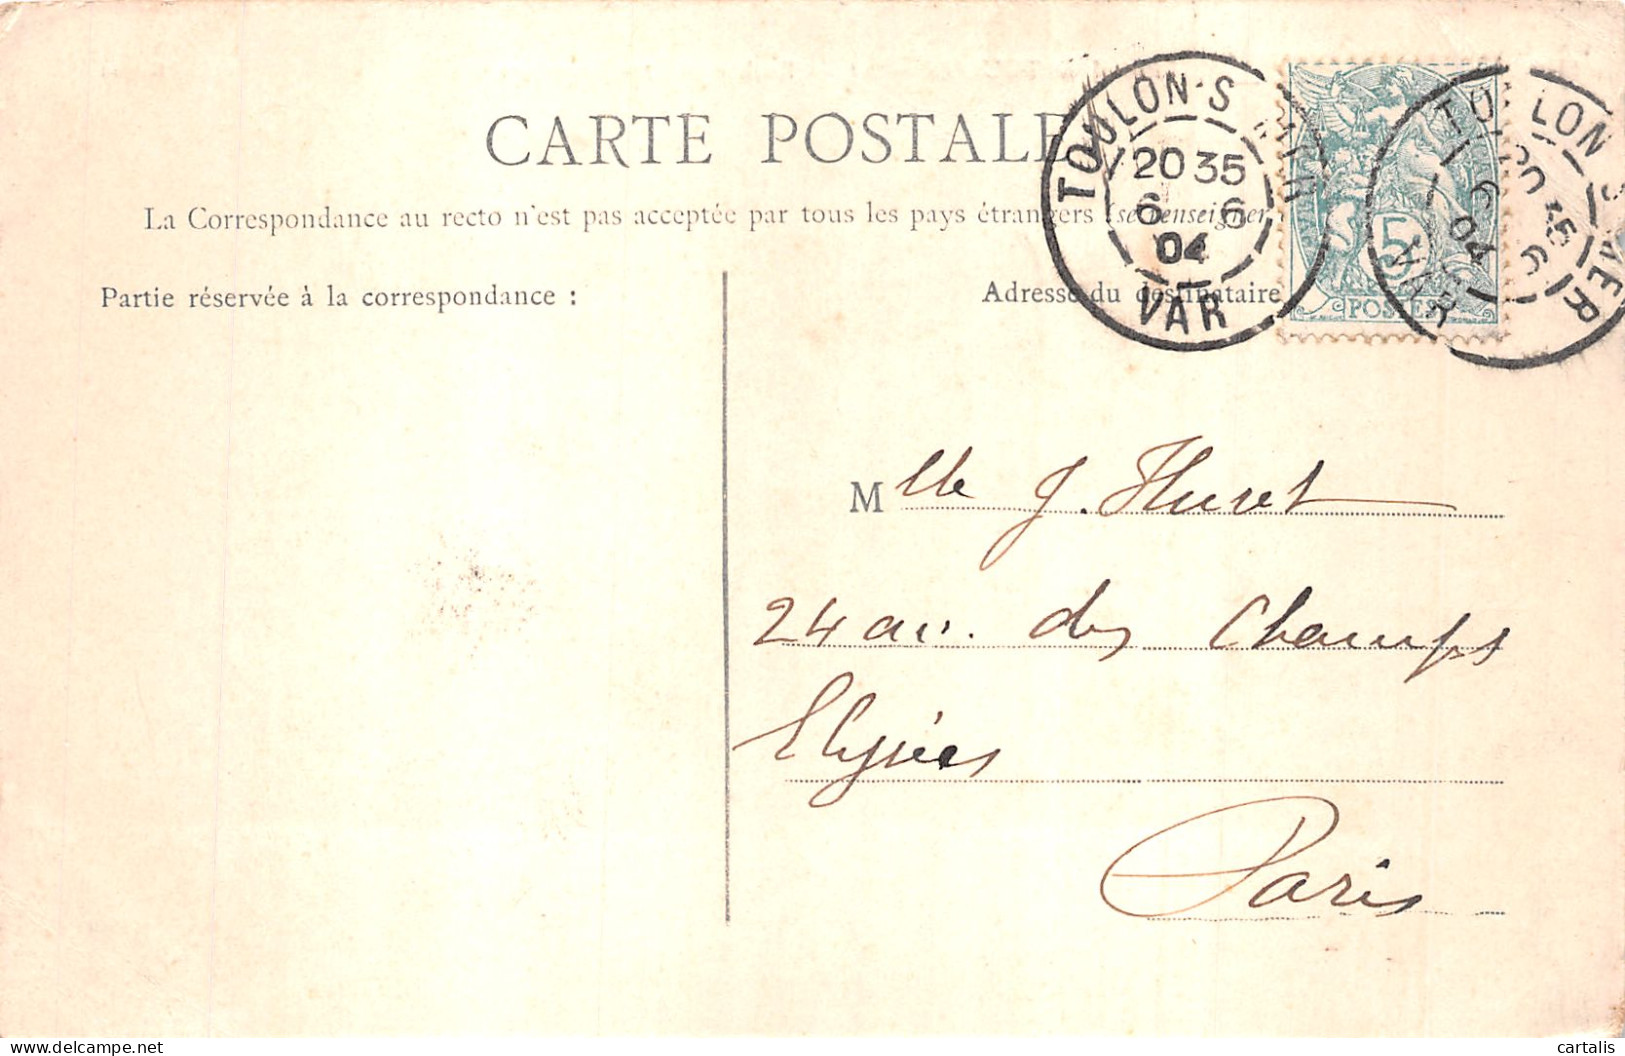 CARTE POSTALE
La Correspondance au recto n'est pas acceptée par tous les pays étrangers (se renseigner
Partie réservée à la correspondance :
Adresse du destinataire
TOULON-S-MER
20 35
6 6
04
VAR
TOULON S MER
20 35
6 6
04
VAR
5
POSTES
Mlle J. Huret
24 av. des Champs
Elysées
Paris
delcampe.net
cartalis